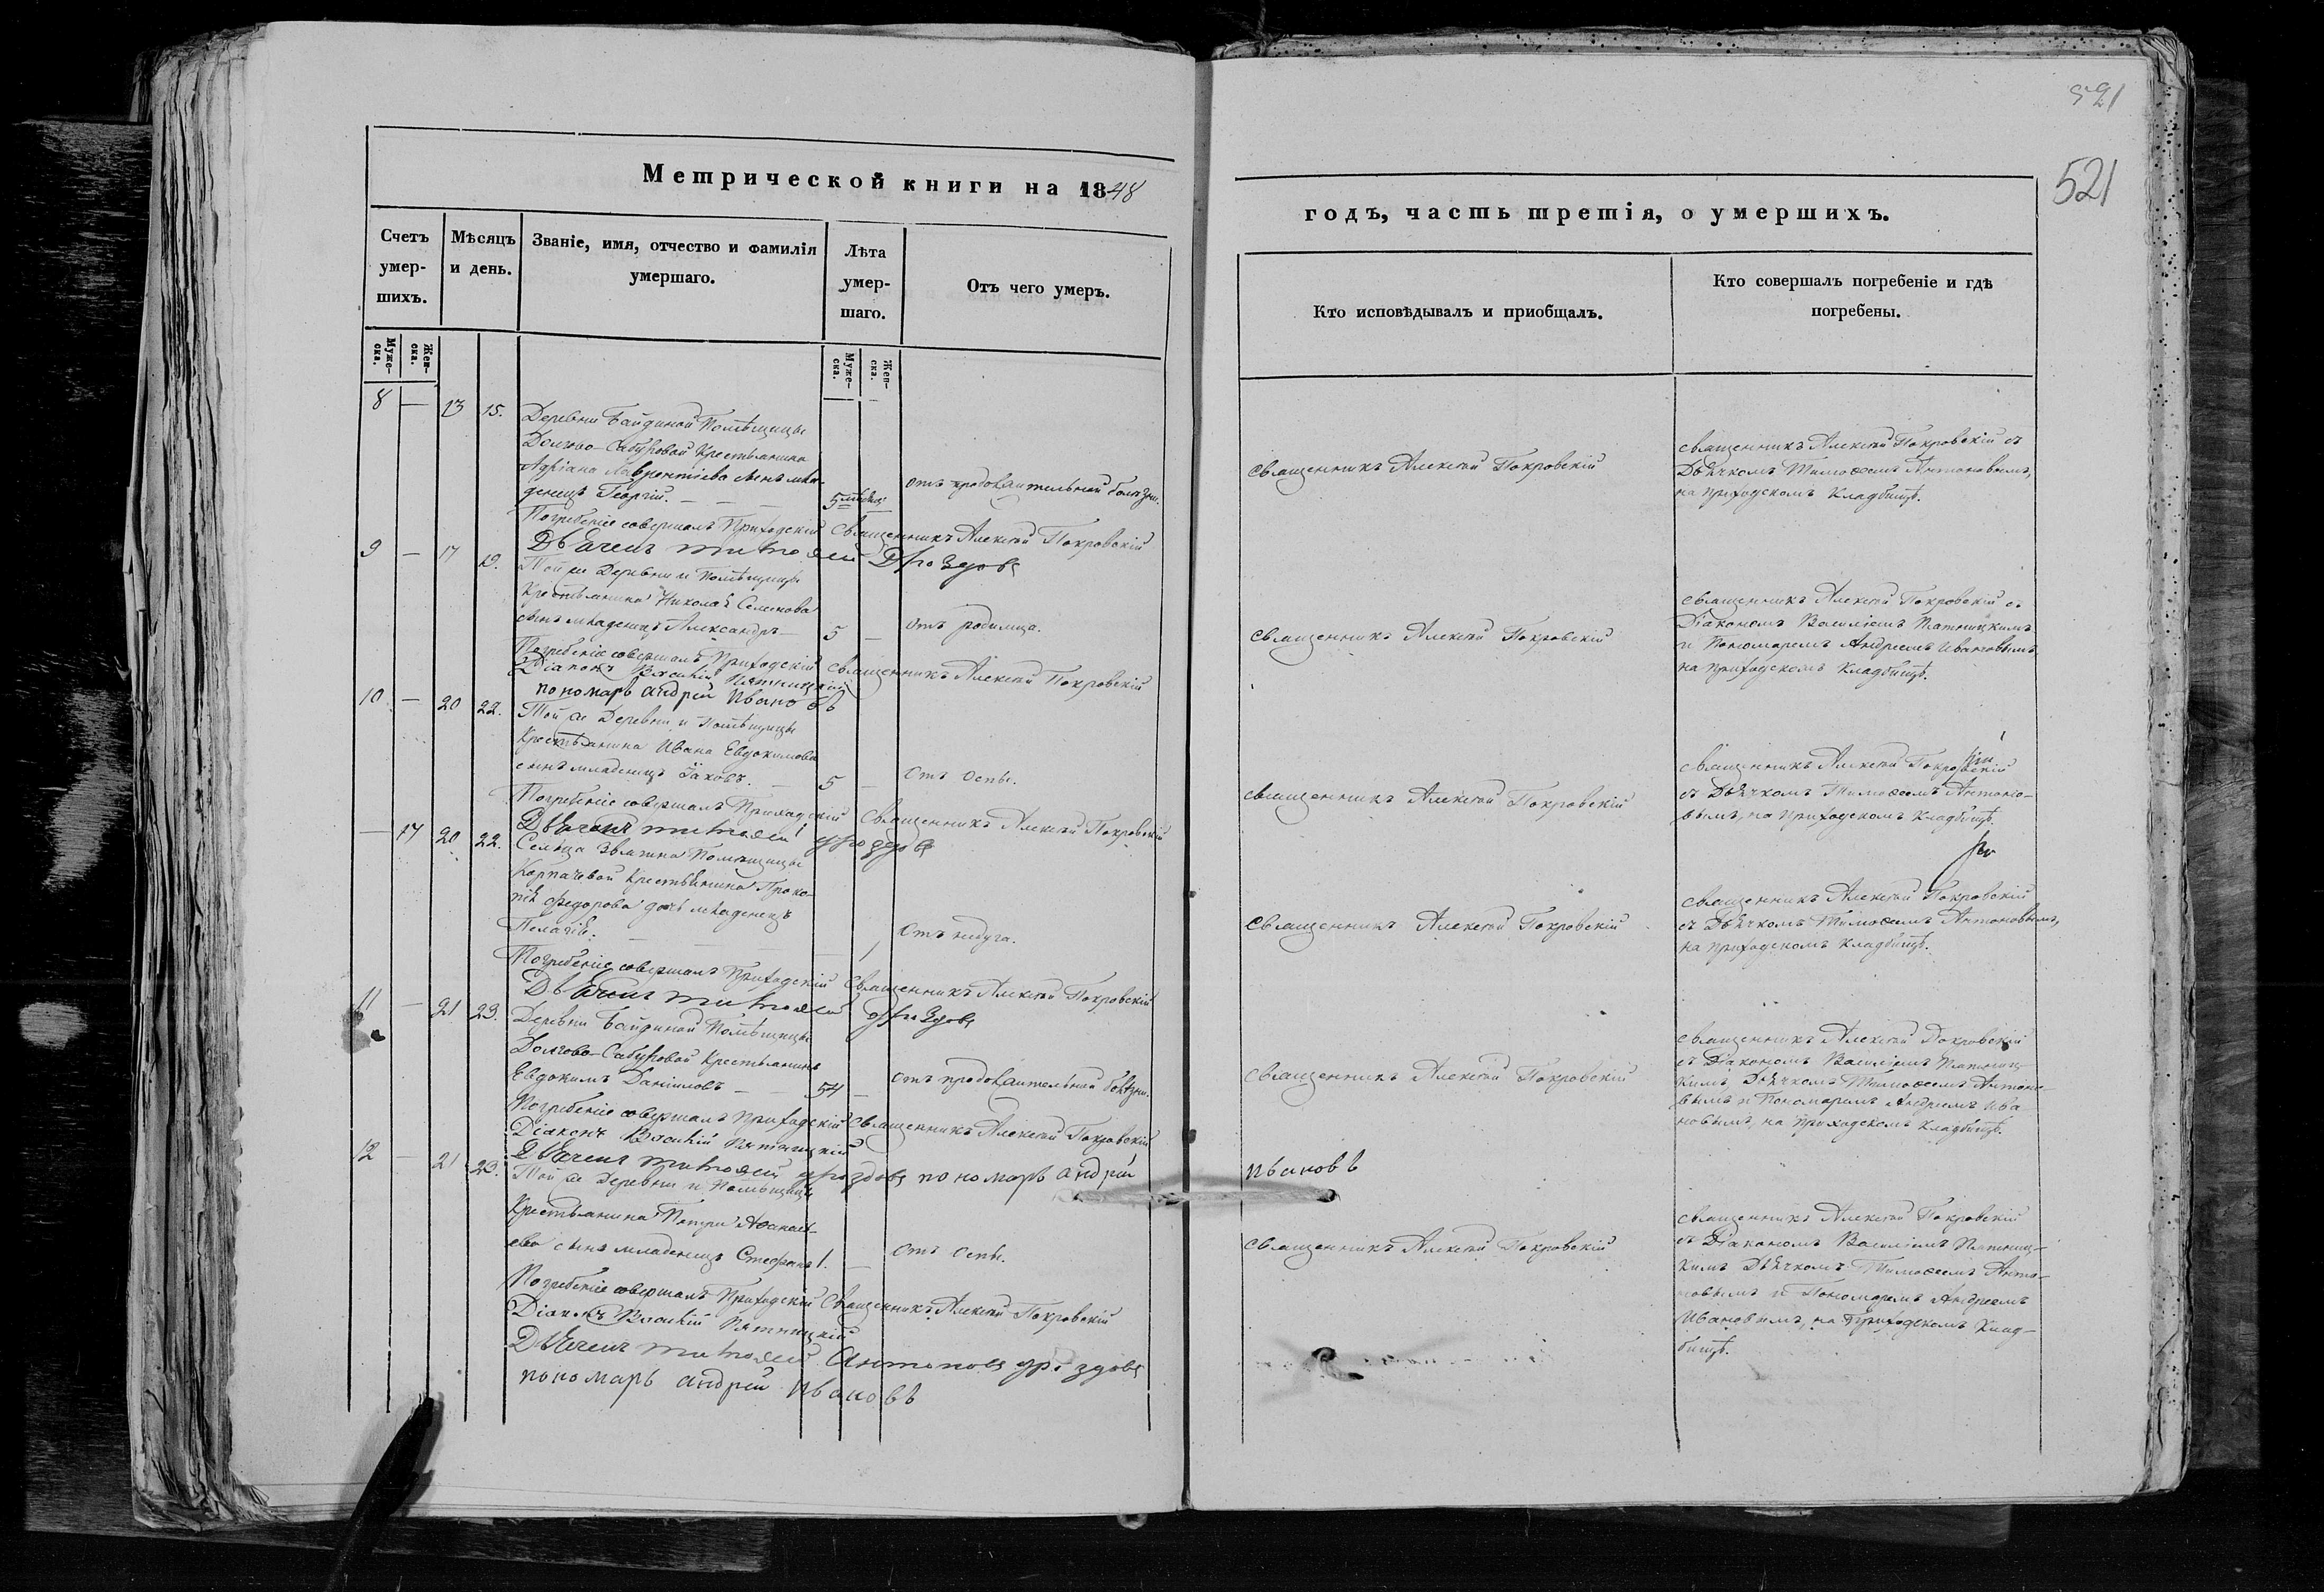 Метрической книги на 1848
Счетъ умер-шихъ.
Мѣсяцъ и день.
Званіе, имя, отчество и фамилія умершаго.
Лѣта умер-шаго.
Отъ чего умеръ.
Муже-ска.
Жен-ска.
Муже-ска.
Жен-ска.
8 — 13 15. Деревни Байдиной Помѣщицы
Долгово-Сабуровой Крестьянина
Адріана Лаврентіева сынъ мла-
денецъ Георгій. — 5 мѣсяц. — отъ продолжительной болѣзни.
Погребеніе совершалъ Приходскій Священникъ Алексѣй Покровскій
Дьячекъ тимоѳей Дроздовъ
9 — 17 19. Той же Деревни и Помѣщицы
Крестьянина Николая Семенова
сынъ младенецъ Александръ — 5 — отъ родимца.
Погребеніе совершалъ Приходскій Священникъ Алексѣй Покровскій
Діаконъ Василій Пятницкій
пономарь андрей Ивановъ
10 — 20 22. Той же Деревни и Помѣщицы
Крестьянина Ивана Евдокимова
сынъ младенецъ Іаковъ. — 5 — отъ оспы.
Погребеніе совершалъ Приходскій Священникъ Алексѣй Покровскій
Дьячекъ тимоѳей дроздовъ
— 17 20 22. Сельца Помѣщицы
Корпачевой Крестьянина Проко-
пія Федорова дочь младенецъ
Пелагія. — 1 Отъ недуга.
Погребеніе совершалъ Приходскій Священникъ Алексѣй Покровскій
Дьячекъ тимоѳей дроздовъ
11 — 21 23. Деревни Байдиной Помѣщицы
Долгово-Сабуровой Крестьянинъ
Евдокимъ Даніиловъ — 54 — отъ продолжительной болѣзни.
Погребеніе совершалъ Приходскій Священникъ Алексѣй Покровскій
Діаконъ Василій Пятницкій
Дьячекъ тимоѳей дроздовъ пономарь андрей Ивановъ
12 — 21 23. Той же Деревни и Помѣщицы
Крестьянина Петра Аѳанась-
ева сынъ младенецъ Стефанъ 1. — отъ оспы.
Погребеніе совершалъ Приходскій Священникъ Алексѣй Покровскій
Діаконъ Василій Пятницкій
Дьячекъ тимоѳей Антоновъ дроздовъ
пономарь андрей Ивановъ
521
521
годъ, часть третія, о умершихъ.
Кто исповѣдывалъ и пріобщалъ.
Кто совершалъ погребеніе и гдѣ погребены.
Священникъ Алексѣй Покровскій
Священникъ Алексѣй Покровскій съ
Дьячкомъ Тимоѳеемъ Антоновымъ,
на приходскомъ Кладбищѣ.
Священникъ Алексѣй Покровскій
Священникъ Алексѣй Покровскій съ
Діакономъ Василіемъ Пятницкимъ
и Пономаремъ Андреемъ Ивановымъ
на приходскомъ Кладбищѣ.
Священникъ Алексѣй Покровскій
Священникъ Алексѣй Покровскій
съ Дьячкомъ Тимоѳеемъ Антоно-
вымъ, на приходскомъ Кладбищѣ.
Священникъ Алексѣй Покровскій
Священникъ Алексѣй Покровскій
съ Дьячкомъ Тимоѳеемъ Антоновымъ,
на приходскомъ кладбищѣ.
Священникъ Алексѣй Покровскій
Священникъ Алексѣй Покровскій
съ Діакономъ Василіемъ Пятниц-
кимъ, Дьячкомъ Тимоѳеемъ Антоно-
вымъ и Пономаремъ Андреемъ Ива-
новымъ, на приходскомъ Кладбищѣ.
Священникъ Алексѣй Покровскій
Священникъ Алексѣй Покровскій
съ Діакономъ Василіемъ Пятниц-
кимъ Дьячкомъ Тимоѳеемъ Анто-
новымъ и Пономаремъ Андреемъ
Ивановымъ, на Приходскомъ Клад-
бищѣ.